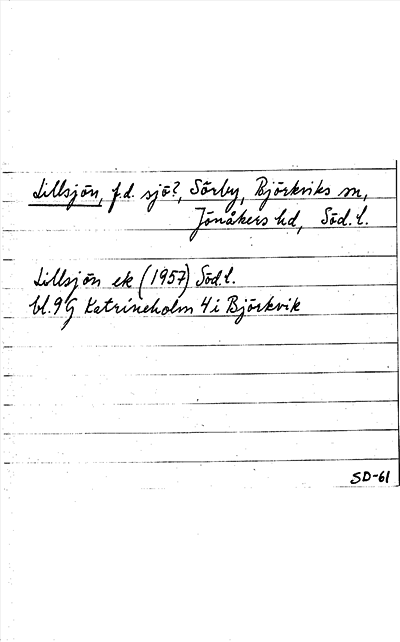 Lillsjön, f.d. sjö?, Sörby, Björkviks sn,
Jönåkers hd, Söd. l.
Lillsjön ek (1957) Söd. l.
bl. 9G Katrineholm 4i Björkvik
SD-61